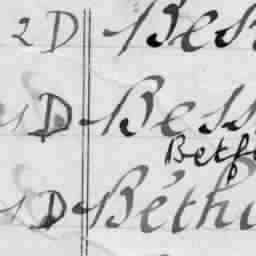 2 D Bess
D Bess
Betf
D Béthu